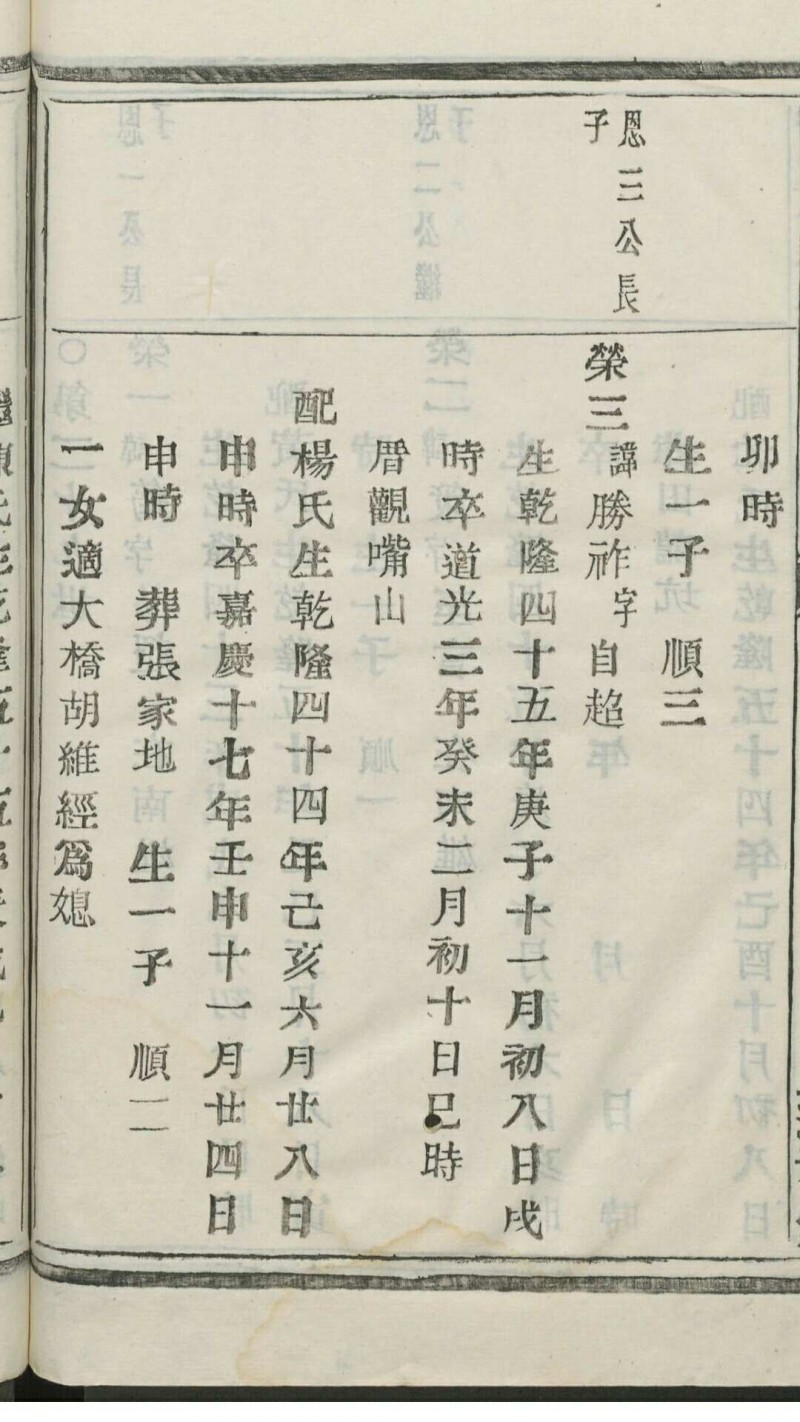 卯時
生一子　順三
恩三公長
子
榮三諱勝祚字自超
生乾隆四十五年庚子十一月初八日戌
時卒道光三年癸未二月初十日巳時
厝觀嘴山
配楊氏生乾隆四十四年己亥六月廿八日
申時卒嘉慶十七年壬申十一月廿四日
申時　葬張家地南　生一子　順二
一女適大橋胡維經爲媳